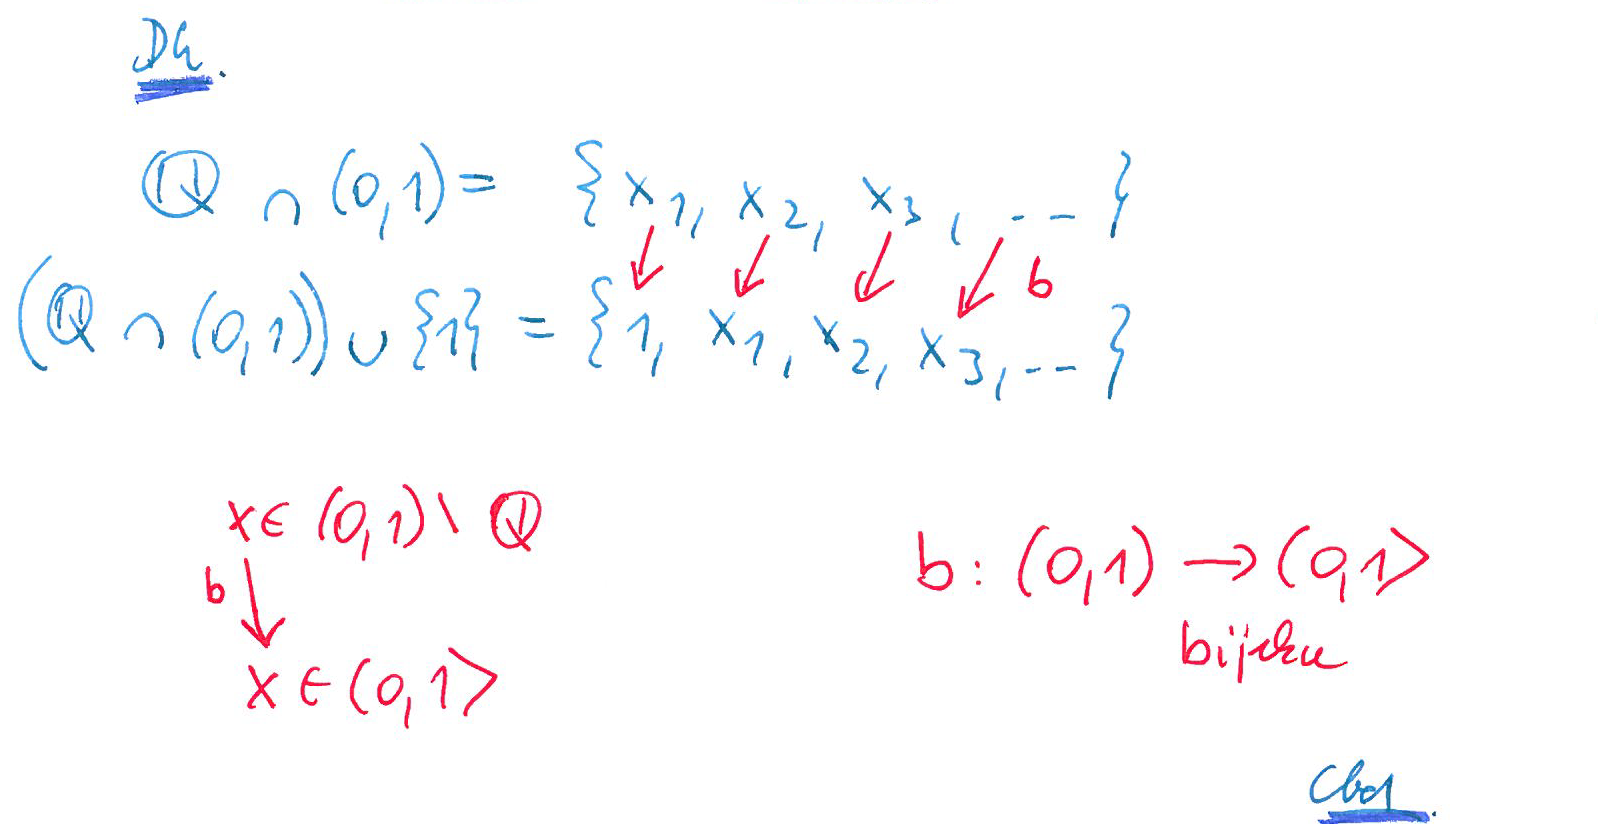 Dk.
ℚ ∩ (0,1) = {x₁, x₂, x₃, --}
b
(ℚ ∩ (0,1)) ∪ {1} = {1, x₁, x₂, x₃, --}
x ∈ (0,1) \ ℚ
b
x ∈ (0,1⟩
b: (0,1) → (0,1⟩
bijekce
Cbd.